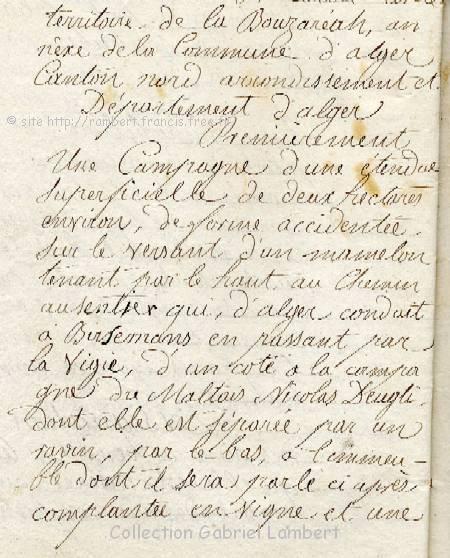 territoire de la Bouzareah, an
nèxe de la Commune d'alger
Canton nord arrondissement et
Département d'alger
© site http://rambert.francis.free.fr
Premièrement
Une Campagne d'une étendue
superficielle de deux hectares
environ, de forme accidentée
sur le versant d'un mamelon
tenant par le haut au Chemin
au sentier qui, d'alger conduit
à Birsemans en passant par
la Vigie, d'un coté a la campa
gne du Maltais Nicolas Deugli
dont elle est séparée par un
ravin, par le bas, a l'immeu-
ble dont il sera parlé ci après
complantée en vigne et une
Collection Gabriel Lambert